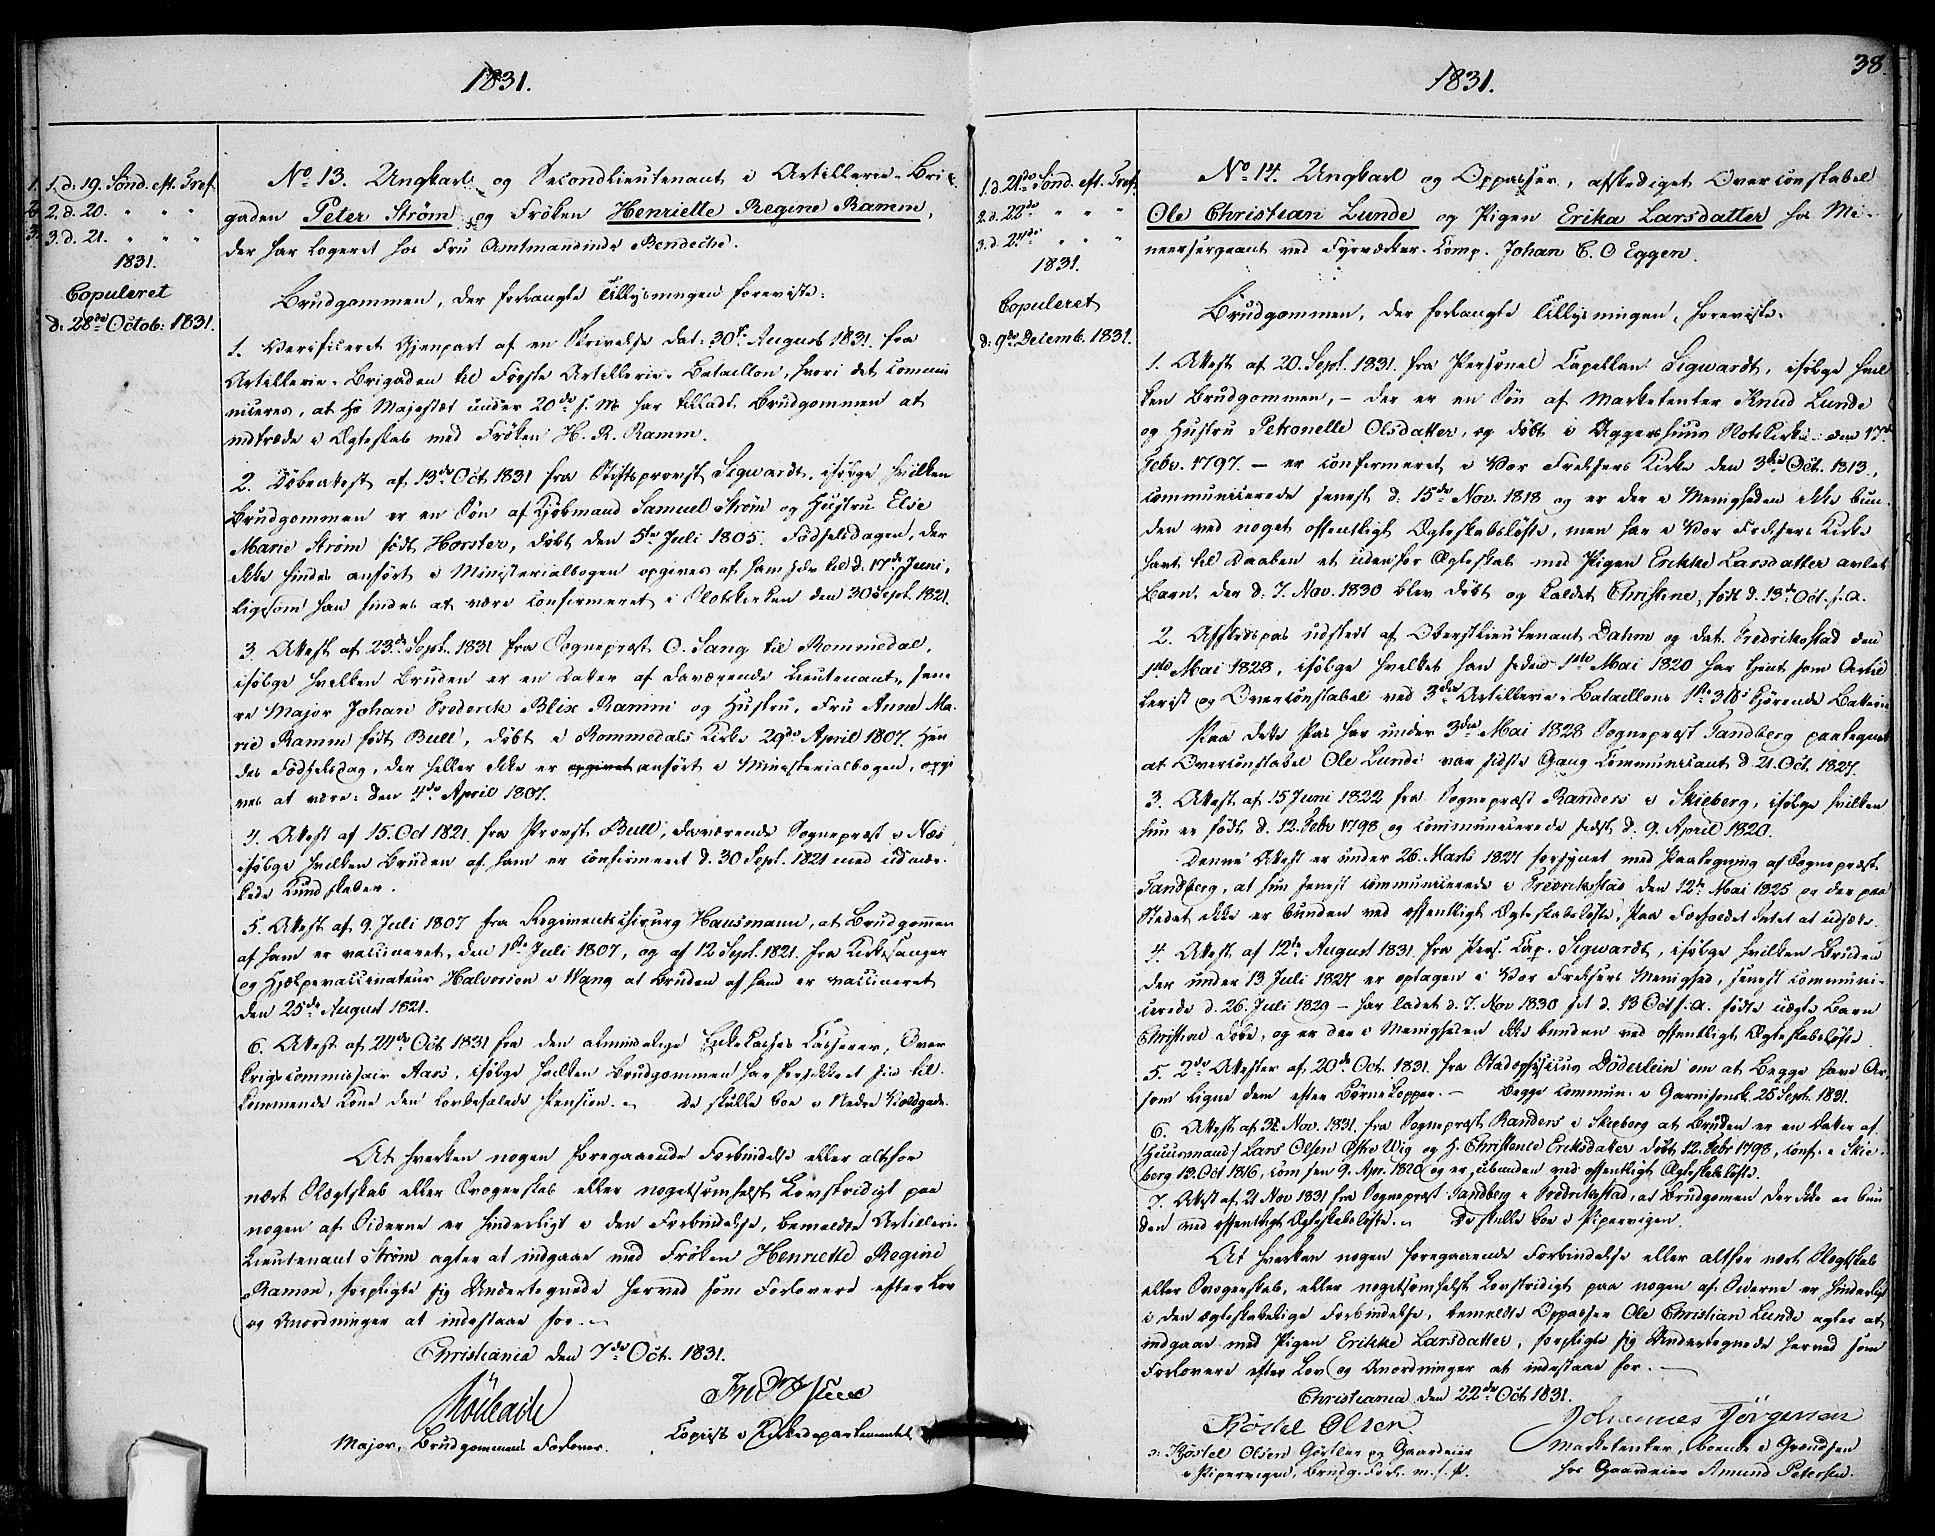 1831.
1. 1. d. 19. Sønd. eft. Tref.
2. 2. d. 20. " " "
3. 3. d. 21. " " "
1831.
Copuleret
d. 28de Octob: 1831.
No 13. Ungkarl og Secondlieutenant i Artillerie-Bri-
gaden Peter Strøm og Frøken Henriette Regine Ramm,
der har logeret hos Fru Amtmandinde Bendeche.
Brudgommen, der forlangte Tillysningen foreviste:
1. Verificeret Gjenpart af en Skrivelse dat: 30te August 1831. fra
Artillerie-Brigaden til Første Artillerie-Bataillon, hvori det commu
niceres, at Hs Majestæt under 20de s. M. har tilladt Brudgommen at
indtræde i Ægteskab med Frøken H. R. Ramm.
2. Døbeattest af 13de Oct 1831 fra Stiftsprovst Sigwardt, ifølge hvilken
Brudgommen er en Søn af Kjøbmand Samuel Strøm og Hustru Else
Marie Strøm født Horster, døbt den 5te Juli 1805. Fødselsdagen, der
ikke findes anført i Ministerialbogen opgives af ham selv til d. 17de Juni,
ligesom han findes at være confirmeret i Slotskirken den 30 Sept. 1821.
3. Attest af 23de Sept. 1831 fra Sognepræst O. Sang til Rommedal,
ifølge hvilken Bruden er en Datter af daværende Lieutenant, sene
re Major Johan Frederik Blix Ramm og Hustru, Fru Anne Ma-
rie Ramm født Bull, døbt i Rommedals Kirke 29de April 1807. Hen
des Fødselsdag, der heller ikke er opgivet anført i Ministerialbogen, opgi
ves at være: den 4de April 1807.
4. Attest af 15. Oct 1821. fra Provst Bull, daværende Sognepræst i Næs,
ifølge hvilken Bruden af ham er confirmeret d. 30 Sept. 1821 med udmær-
kede Kundskaber.
5. Attest af 9. Juli 1807 fra Regimentschirurg Hausmann, at Brudgommen
af ham er vaccineret, den 1ste Juli 1807, og af 12 Sept. 1821. fra Kirkesanger
og Hjelpevaccinateur Halvorsen i Wang at Bruden af ham er vaccineret
den 25de August 1821.
6. Attest af 24de Oct 1831 fra den almindelige Enkekasses Casserer, Over
krigscommissair Aars, ifølge hvilken Brudgommen har forsikkret sin til-
kommende Kone den lovbefalede Pension. De skulle boe i Nedre Voldgade.
At hverken nogen foregaaende Forbindelse eller altfor
nært Slægtskab eller Svogerskab eller nogetsomhelst Lovstridigt paa
nogen af Siderne er hinderligt i den Forbindelse, bemeldte Artilleri-
Lieutenant Strøm agter at indgaae med Frøken Henriette Regine
Ramm, forpligte sig Undertegnede herved som Forlovere efter Lov
og Anordninger at indestaae for.
Christiania den 7de Oct. 1831.
Major, Brudgommens Forlover.
Copist i Kirkedepartementet
1831.
38.
1. d. 21de Sønd. eft. Tref.
2. d. 22de " " "
3. d. 24de " " "
1831.
Copuleret
d: 9de Decemb. 1831.
No 14. Ungkarl og Oppasser, afskediget Overconstabel
Ole Christian Lunde og Pigen Erika Larsdatter hos Mi-
neersergeant ved Fyrværker-Comp. Johan C. O Eggen.
Brudgommen, der forlangte Tillysningen, foreviste:
1. Attest af 20. Sept. 1831. fra Personel Capellan Sigwardt, ifølge hvil
ken Brudgommen, - der er en Søn af Marketenter Knud Lunde
og Hustru Petronelle Olsdatter, og døbt i Aggershuus Slotskirke den 17de
Febr. 1797. - er confirmeret i Vor Frelsers Kirke den 3die Oct. 1813,
communicerede senest d. 15de Nov. 1818 og er der i Menigheden ikke bun-
den ved noget offentligt Ægteskabsløfte, men har i Vor Frelsers Kirke
havt til Daaben et udenfor Ægteskab med Pigen Erikke Larsdatter avlet
Barn, der d. 7. Nov. 1830 blev døbt og kaldet Christine, født d. 13de Oct. s. A.
2. Afskedspas udstedt af Oberstlieutenant Dahm og dat. Fredriksstad den
1ste Mai 1828, ifølge hvilket han siden 1ste Mai 1820 har tjent som Artil
lerist og Overconstabel ved 3die Artillerie-Bataillons 1ste 3 lb's kjørende Batterie
Paa dette Pas har under 3die Mai 1828 Sognepræst Tandberg paategnet
at Overconstabel Ole Lunde var sidste Gang Communicant d 21. Oct. 1827.
3. Attest af 15 Juni 1822 fra Sognepræst Randers i Skieberg, ifølge hvilken
hun er født d. 12. Febr 1798 og communicerede sidst d. 9. April 1820.
Denne Attest er under 26. Marts 1827 forsynet med Paategning af Sognepræst
Tandberg, at hun senest communicerede i Fredriksstad den 12te Mai 1825 og der paa
Stedet ikke er bunden ved offentligt Ægteskabsløfte, paa Forholdet Intet at udsætte.
4. Attest af 12te August 1831 fra Pers. Cap. Sigwardt, ifølge hvilken Bruden
der under 13 Juli 1827 er optagen i Vor Frelsers Menighed, senest communi-
cerede d. 26. Juli 1829 - har ladet d. 7. Nov 1830 sit d. 13 Oct s. A. fødte uægte Barn
Christine døbe, og er der i Menigheden ikke bunden ved offentligt Ægteskabsløfte.
5. 2de Attester af 20de Oct. 1831. fra Stadsphysicus Döderlein om at Begge have Ar,
som ligne dem efter Børnekopper. - Begge commun. i Garnisonsk. 25 Sept. 1831.
6. Attest af 24. Nov. 1831. fra Sognepræst Randers i Skieberg at Bruden er en Datter af
Huusmand Lars Olsen Østre Wig og H. Christense Eriksdatter døbt 12. Febr 1798, conf. i Skie-
berg 13. Oct 1816, com sen 9. Apr. 1820 og er ubunden ved offentligt Ægteskabsløfte.
7. Attest af 21 Nov 1831 fra Sognepræst Tandberg i Fredriksstad, at Brudgommen der ikke er bun
den ved offentligt Ægteskabsløfte. De skulle boe i Pipervigen.
At hverken nogen foregaaende Forbindelse eller altfor nært Slægtskab
eller Svogerskab, eller nogetsomhelst Lovstridigt paa nogen af Siderne er hinderligt
i den ægteskabelige Forbindelse, bemeldte Oppasser Ole Christian Lunde agter at
indgaae med Pigen Erikke Larsdatter, forpligte sig Undertegnede herved som
Forlovere efter Lov og Anordninger at indestaae for.
Christiania den 22de Oct 1831.
Køstel Olsen
Johannes Jørgensen
Kjøstel Olsen Gørtler og Gaardeier
i Pipervigen, Brudg. Forl. m. f. P.
Marketenter, boende i Grændsen
hos Gaardeier Amund Petersen.